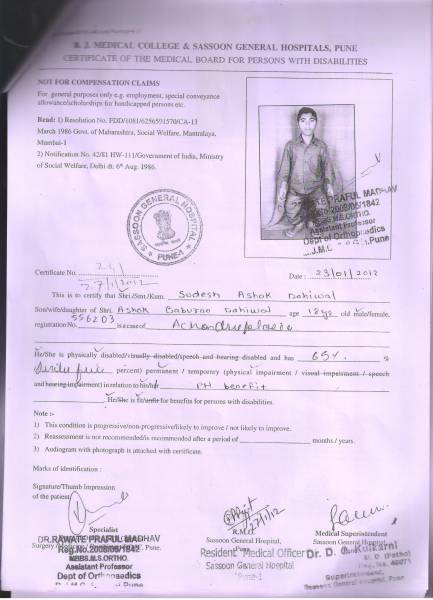 B. J. MEDICAL COLLEGE & SASSOON GENERAL HOSPITALS, PUNE
CERTIFICATE OF THE MEDICAL BOARD FOR PERSONS WITH DISABILITIES
NOT FOR COMPENSATION CLAIMS
For general purposes only e.g. employment, special conveyance
allowance/scholorships for handicapped persons etc.
Read: 1) Resolution No. FDD/1081/6256591570/CA-13
March 1986 Govt. of Maharashtra, Social Welfare, Mantralaya,
Mumbai-1
2) Notification No. 42/81 HW-111/Government of India, Ministry
of Social Welfare, Delhi & 6th Aug. 1986.
PRAFUL MADHAV
2008/05/1842
MBBS.M.S.ORTHO.
Assistant Professor
Dept of Orthopaedics
B.J.M.C. Pune
SASSOON GENERAL HOSPITAL
PUNE
Certificate No.
27/1/2012
Date : 23/01/2012
This is to certify that Shri./Smt./Kum. Sudesh Ashok Dahiwal
Son/wife/daughter of Shri. Ashok Baburao Dahiwal age 18yrs old male/female,
registration No. 556203 is a case of Achondroplasia
He/She is physically disabled/visually disabled/speech and hearing disabled and has 65% %
(Sixty five percent) permanent / temporary (physical impairment / visual impairment / speech
and hearing impairment) in relation to his/her PH benefit
He/She is fit/unfit for benefits for persons with disabilities.
Note :-
1) This condition is progressive/non-progressive/likely to improve / not likely to improve.
2) Reassessment is not recommended/is recommended after a period of months / years.
3) Audiogram with photograph is attached with certificate.
Marks of identification :
Signature/Thumb impression
of the patient
27/1/12
Specialist R.M.O. Medical Superintendent
DR.RAWATE PRAFUL MADHAV Sassoon General Hospital, Sassoon General Hospital,
Reg.No.2008/05/1842
Surgery Pune.
MBBS.M.S.ORTHO. Resident Medical Officer Dr. D. G. Kulkarni
Assistant Professor Sassoon General Hospital
Dept of Orthopaedics Pune-1
Superintendent,
Sassoon General Hospital, Pune